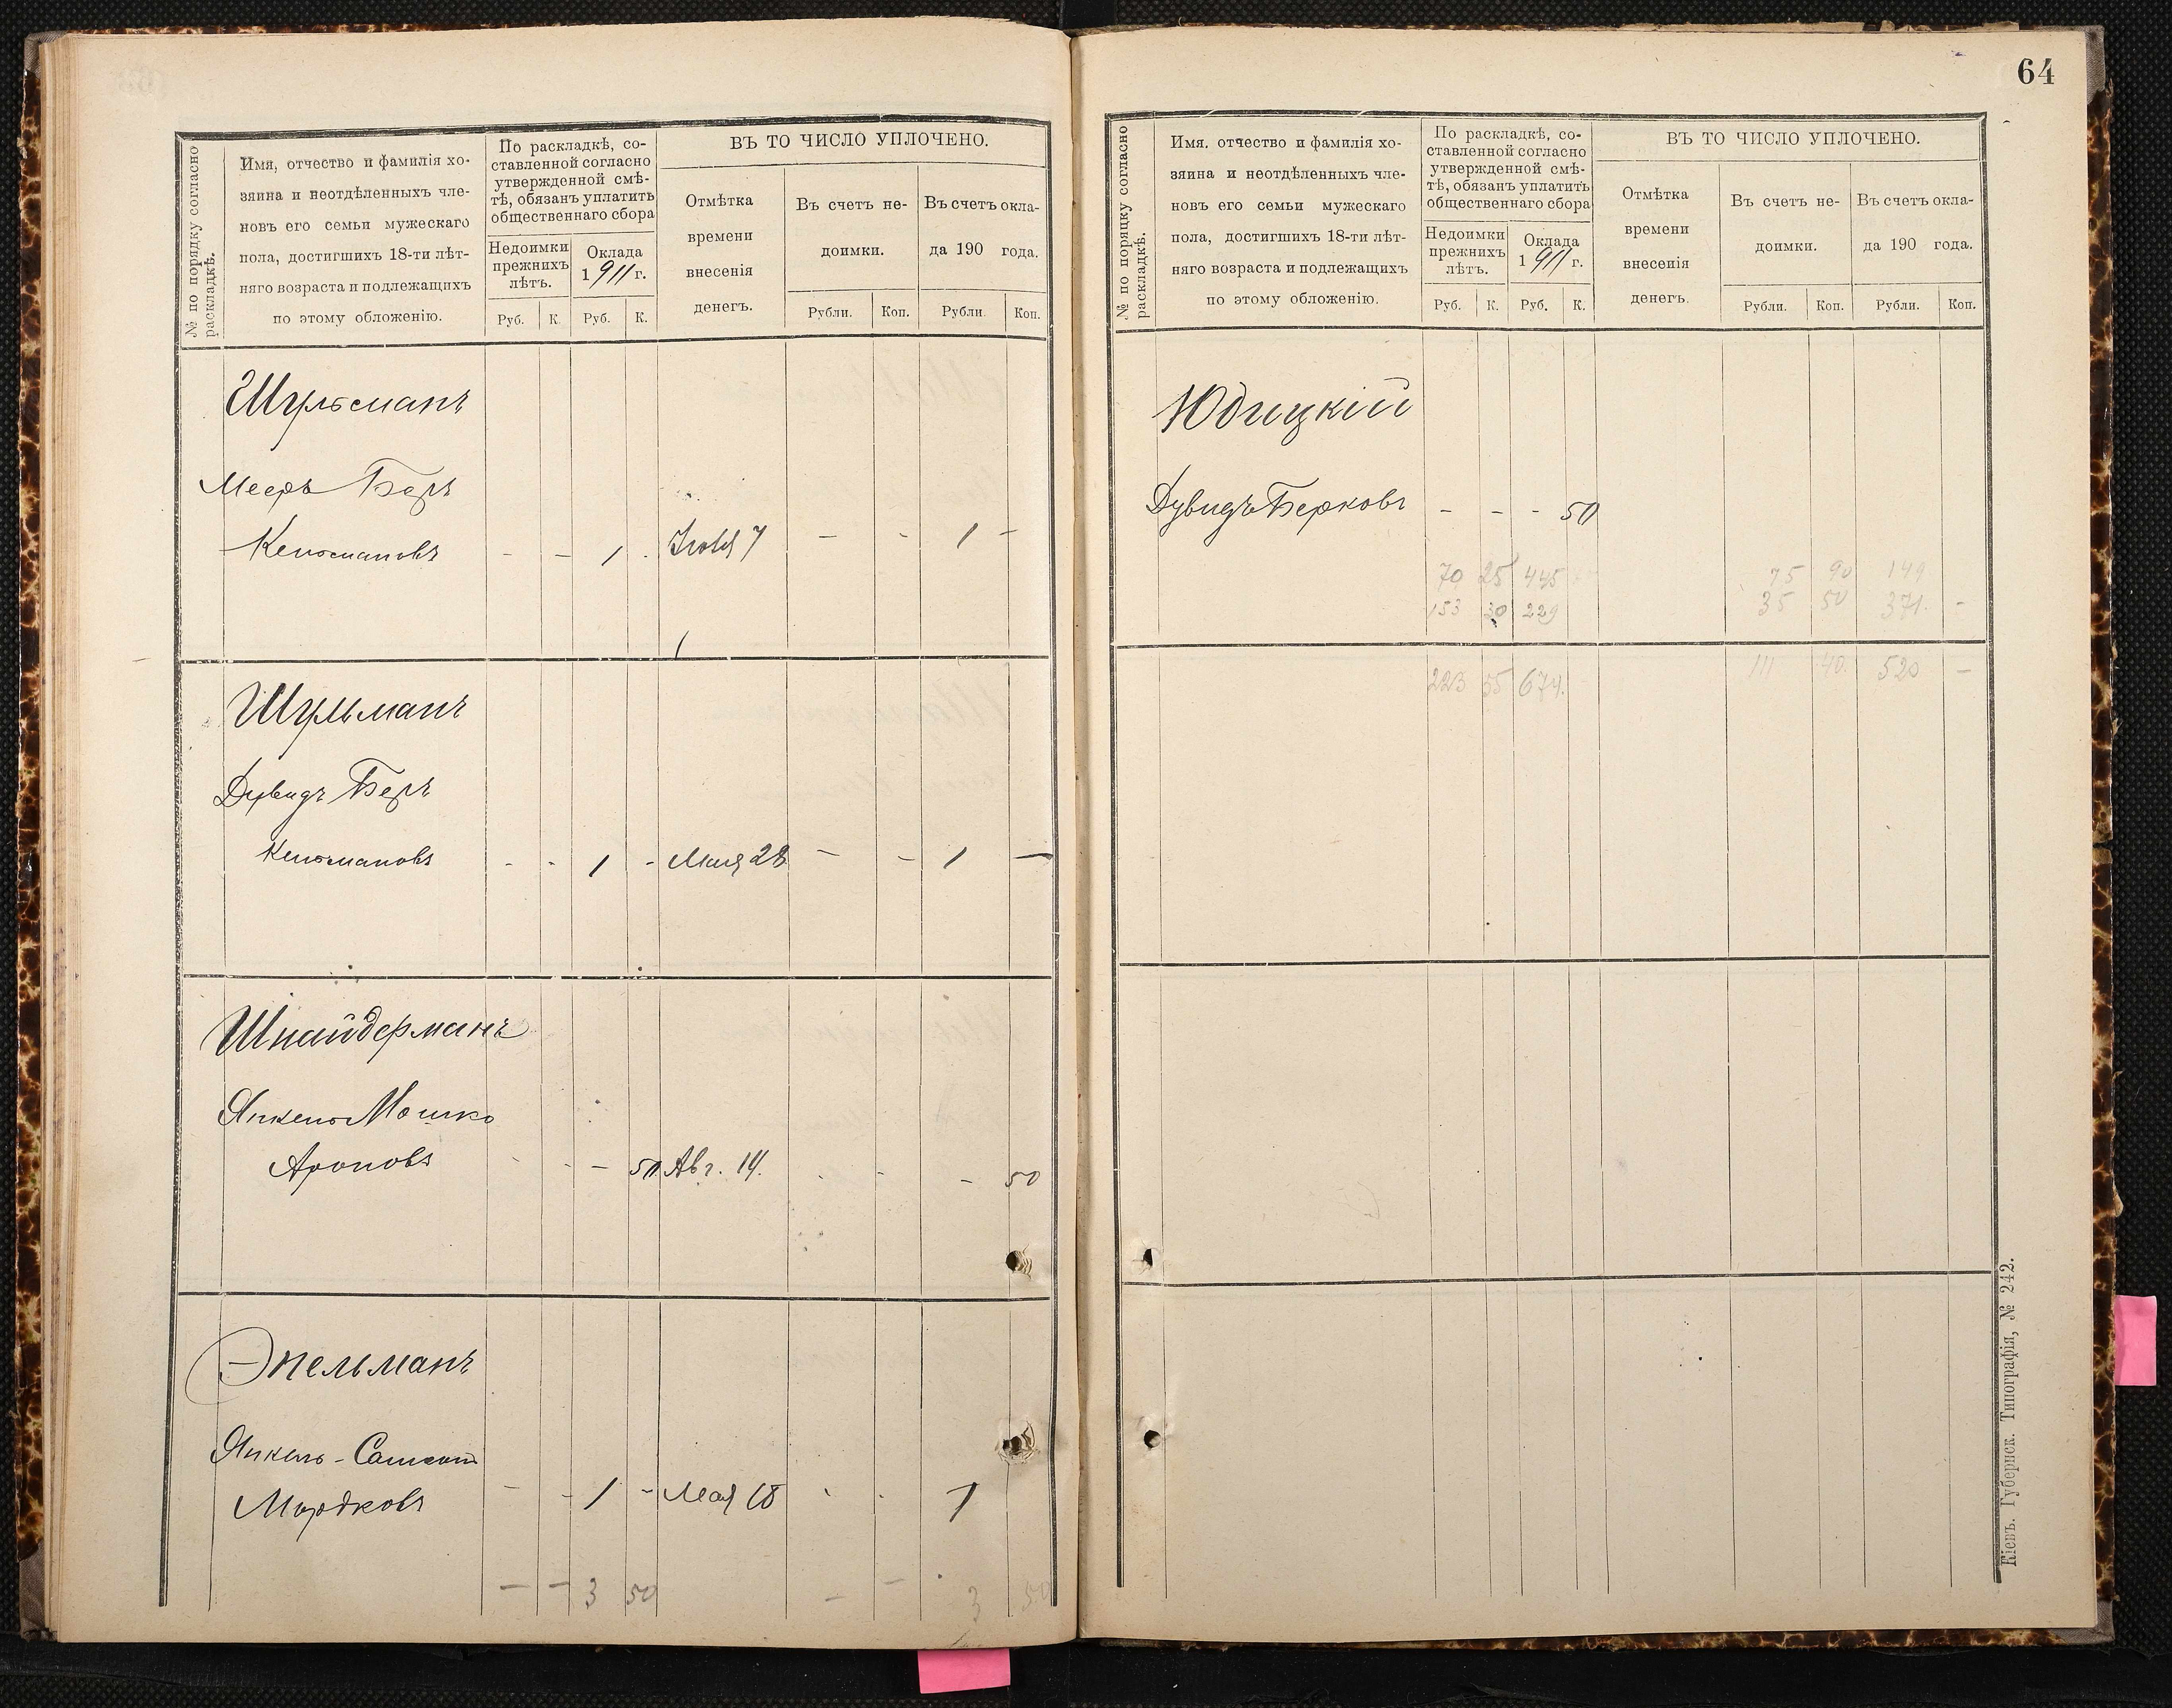 № по порядку согласно
раскладкѣ.
Имя, отчество и фамилія хо-
зяина и неотдѣленныхъ чле-
новъ его семьи мужескаго
пола, достигшихъ 18-ти лѣт-
няго возраста и подлежащихъ
по этому обложенію.
По раскладкѣ, со-
ставленной согласно
утвержденной смѣ-
тѣ, обязанъ уплатить
общественнаго сбора
Недоимки
прежнихъ
лѣтъ.
Оклада
1911 г.
Руб. К. Руб. К.
ВЪ ТО ЧИСЛО УПЛОЧЕНО.
Отмѣтка
времени
внесенія
денегъ.
Въ счетъ не-
доимки.
Въ счетъ окла-
да 190 года.
Рубли. Коп. Рубли. Коп.
Шульсманъ
Мееръ Беръ
Кельмановъ - - 1 - Іюля 7 - - 1 -
Шульманъ
Дувидъ Беръ
Кельмановъ - - 1 - Мая 28 - - 1 -
Шнайдерманъ
Янкель Мошко
Ароновъ - - - 50 Авг. 14. - - - 50
Эпельманъ
Янкель-Самсонъ
Мордковъ - - 1 - Мая 18 - - 1
- - 3 50 - - 3 50
64
№ по порядку согласно
раскладкѣ.
Имя. отчество и фамилія хо-
зяина и неотдѣленныхъ чле-
новъ его семьи мужескаго
пола, достигшихъ 18-ти лѣт-
няго возраста и подлежащихъ
по этому обложенію.
По раскладкѣ, со-
ставленной согласно
утвержденной смѣ-
тѣ, обязанъ уплатить
общественнаго сбора
Недоимки
прежнихъ
лѣтъ.
Оклада
1911 г.
Руб. К. Руб. К.
ВЪ ТО ЧИСЛО УПЛОЧЕНО.
Отмѣтка
времени
внесенія
денегъ.
Въ счетъ не-
доимки.
Въ счетъ окла-
да 190 года.
Рубли. Коп. Рубли. Коп.
Юдицкій
Дувидъ Берковъ - - - 50
70 25 445 75 90 149
153 30 229 35 50 371. -
223 55 674. 111 40. 520 -
Кіевъ. Губернск. Типографія, № 242.